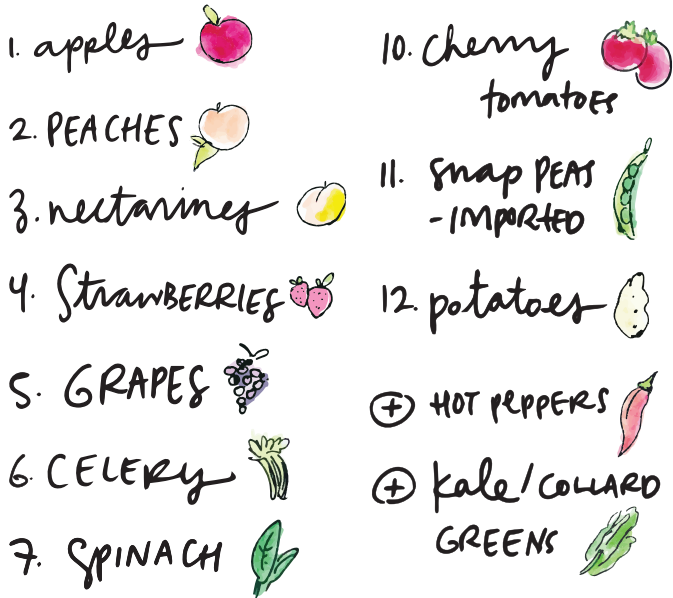 1. apples
2. PEACHES
3. nectarines
4. StrawBERRIES
5. GRAPES
6. CELERY
7. SPINACH
10. Cherry
tomatoes
11. snap PEAS
- IMPORTED
12. potatoes
+ HOT PEPPERS
+ Kale/COLLARD
GREENS